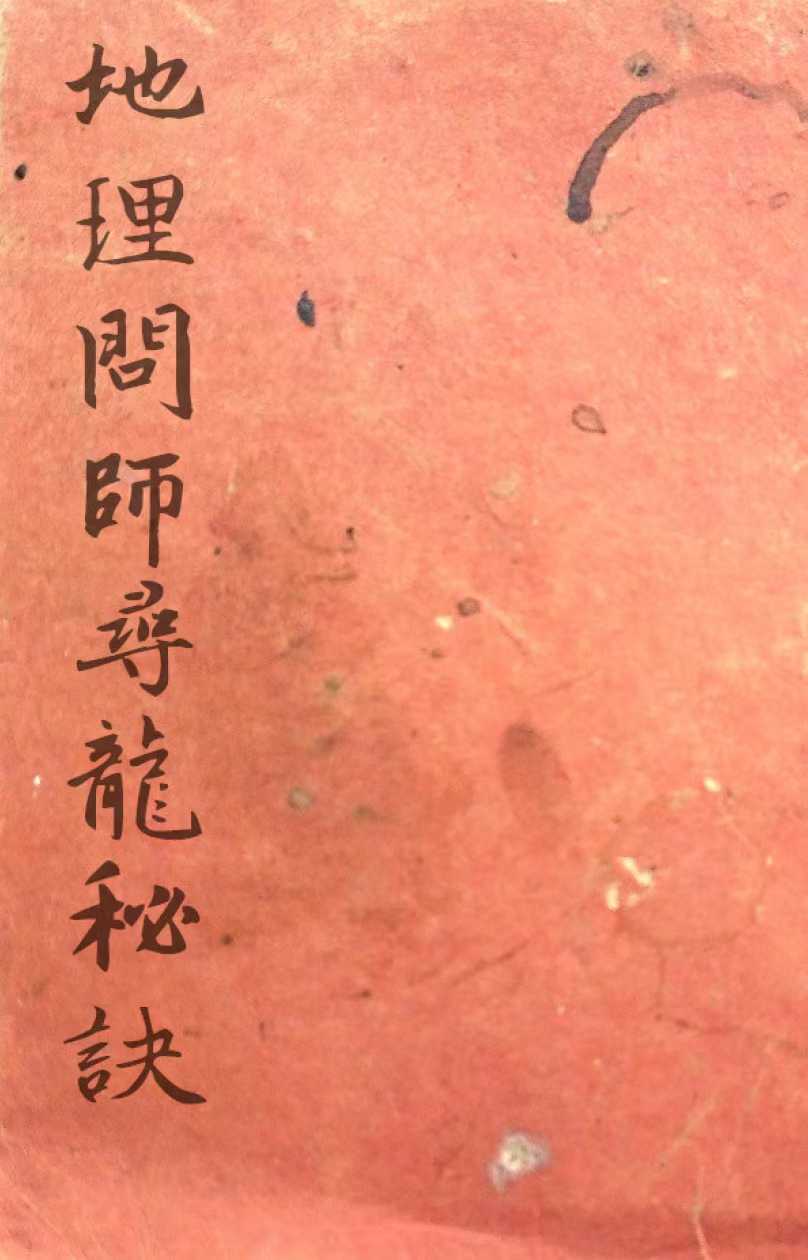 地理問師尋龍秘訣